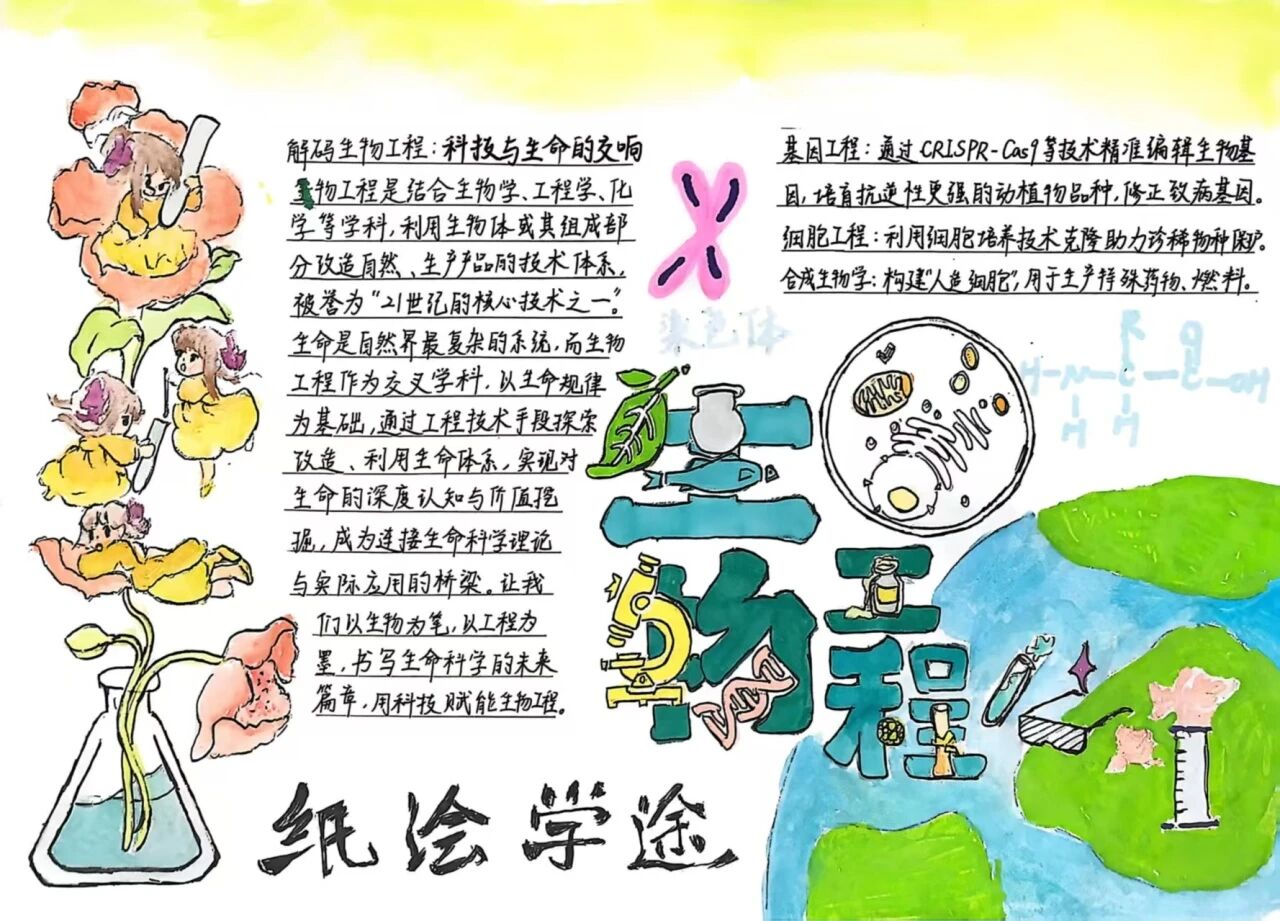 解码生物工程：科技与生命的交响
生物工程是结合生物学、工程学、化
学等学科，利用生物体或其组成部
分改造自然、生产产品的技术体系，
被誉为“21世纪的核心技术之一”。
生命是自然界最复杂的系统，而生物
工程作为交叉学科，以生命规律
为基础，通过工程技术手段探索
改造、利用生命体系，实现对
生命的深度认知与价值挖
掘，成为连接生命科学理论
与实际应用的桥梁。让我
们以生物为笔，以工程为
墨，书写生命科学的未来
篇章，用科技赋能生物工程。
基因工程：通过CRISPR-Cas9等技术精准编辑生物基
因，培育抗逆性更强的动植物品种，修正致病基因。
细胞工程：利用细胞培养技术克隆助力珍稀物种保护。
合成生物学：构建“人造细胞”，用于生产特殊药物、燃料。
染色体
R O
H-N-C-C-OH
H H
生
物工
程
纸绘学途